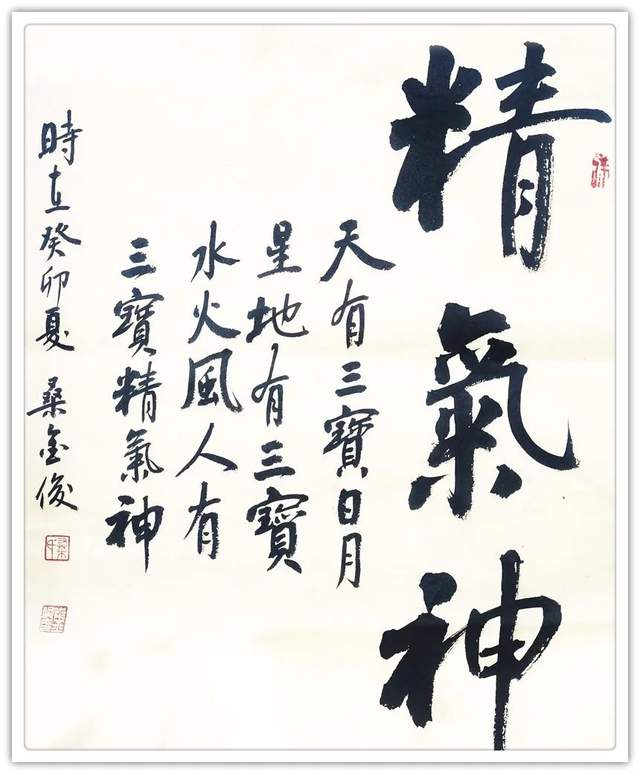 精氣神
天有三寶日月
星地有三寶
水火風人有
三寶精氣神
時在癸卯夏 桑金俊